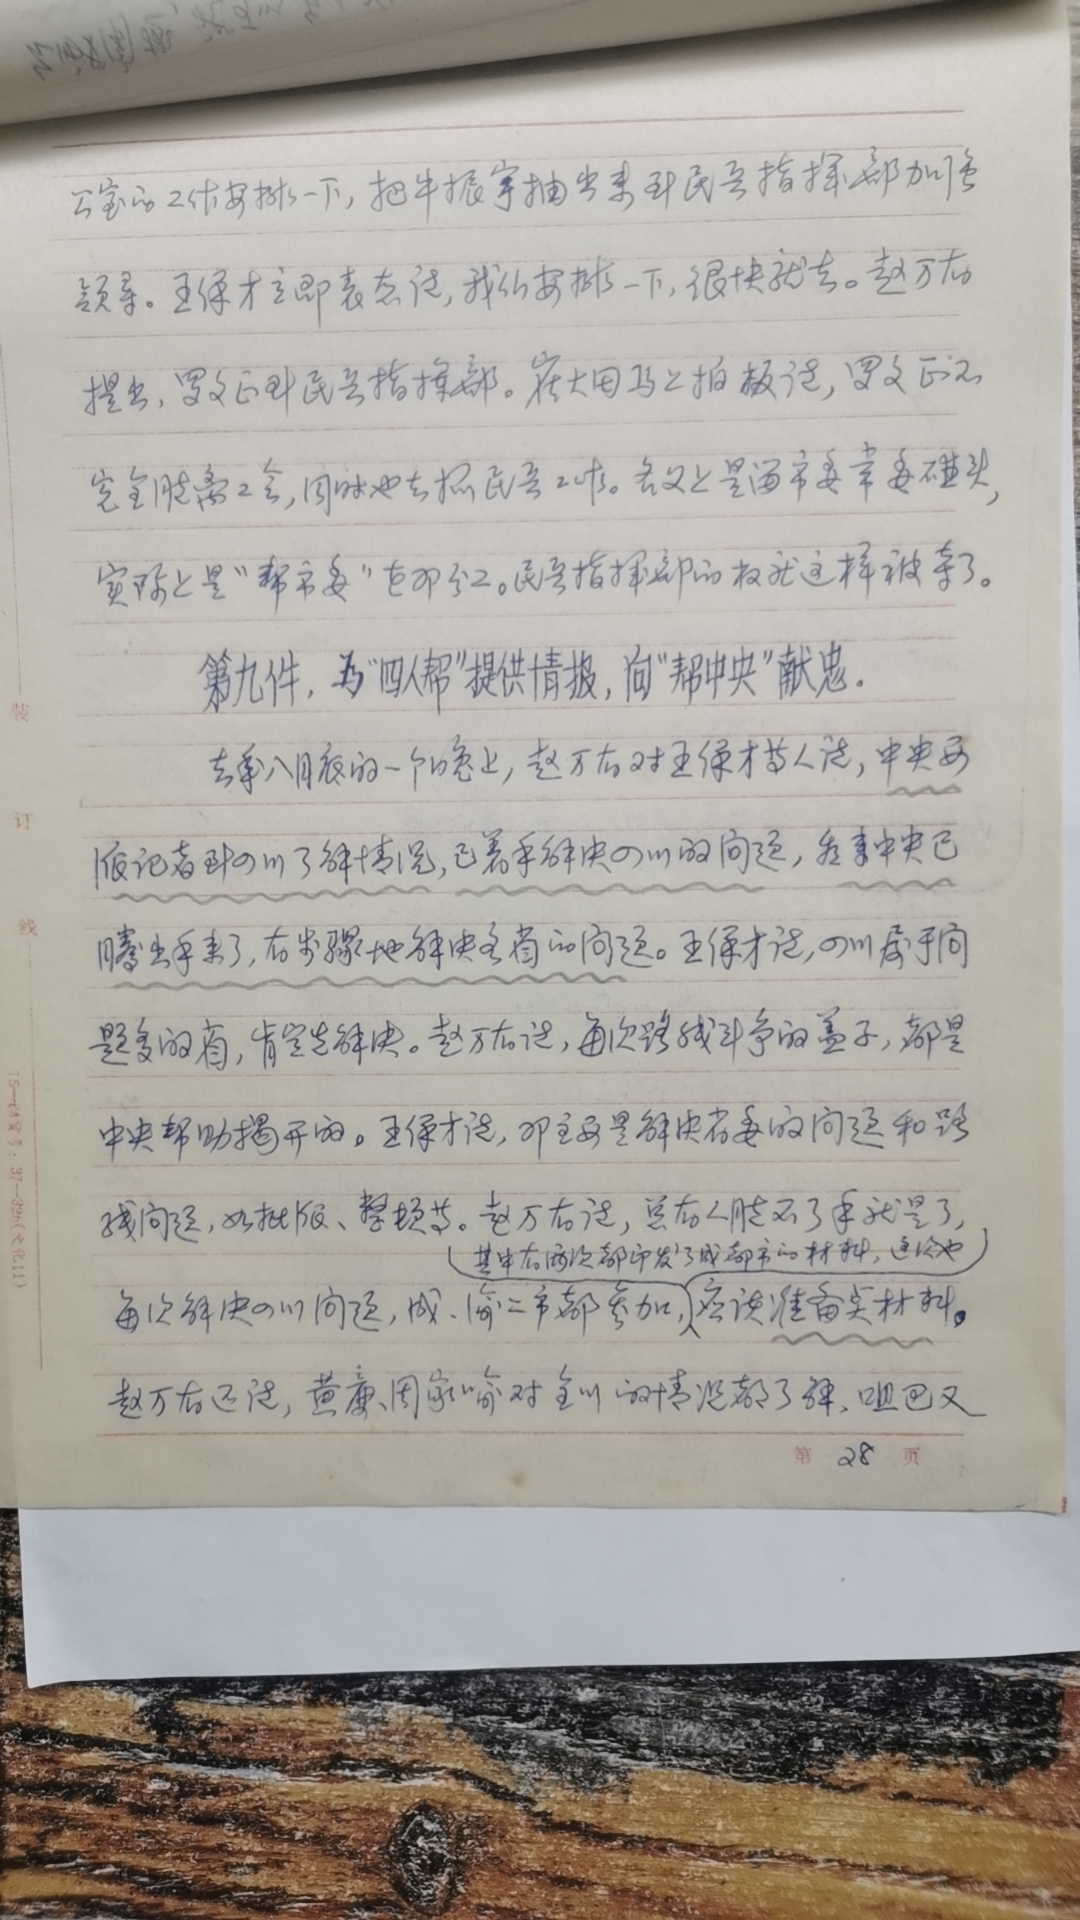 公室的工作安排一下，把牛振宇抽出来到民兵指挥部加强
领导。王保才立即表态说，我们安排一下，很快就去。赵万右
提出，罗文正到民兵指挥部。崔大田马上拍板说，罗文正不
完全脱离工会，同时也去抓民兵工作。名义上是通市委常委碰头，
实际上是“帮市委”在那分工。民兵指挥部的权就这样被夺了。
第九件，为“四人帮”提供情报，向“帮中央”献忠。
去年八月底的一个晚上，赵万右对王保才等人说，中央要
派记者到四川了解情况，已着手解决四川的问题，看来中央已
腾出手来了，有步骤地解决各省的问题。王保才说，四川属于问
题多的省，肯定先解决。赵万右说，每次路线斗争的盖子，都是
中央帮助揭开的。王保才说，那主要是解决省委的问题和路
线问题，如批派、整顿等。赵万右说，总有人脱不了手就是了，
其中有两次都印发了成都市的材料，这次也
每次解决四川问题，成、渝二市都参加，应该准备些材料。
赵万右还说，黄廉、周家喻对全川的情况都了解，咀巴又
第 28 页
装
订
线